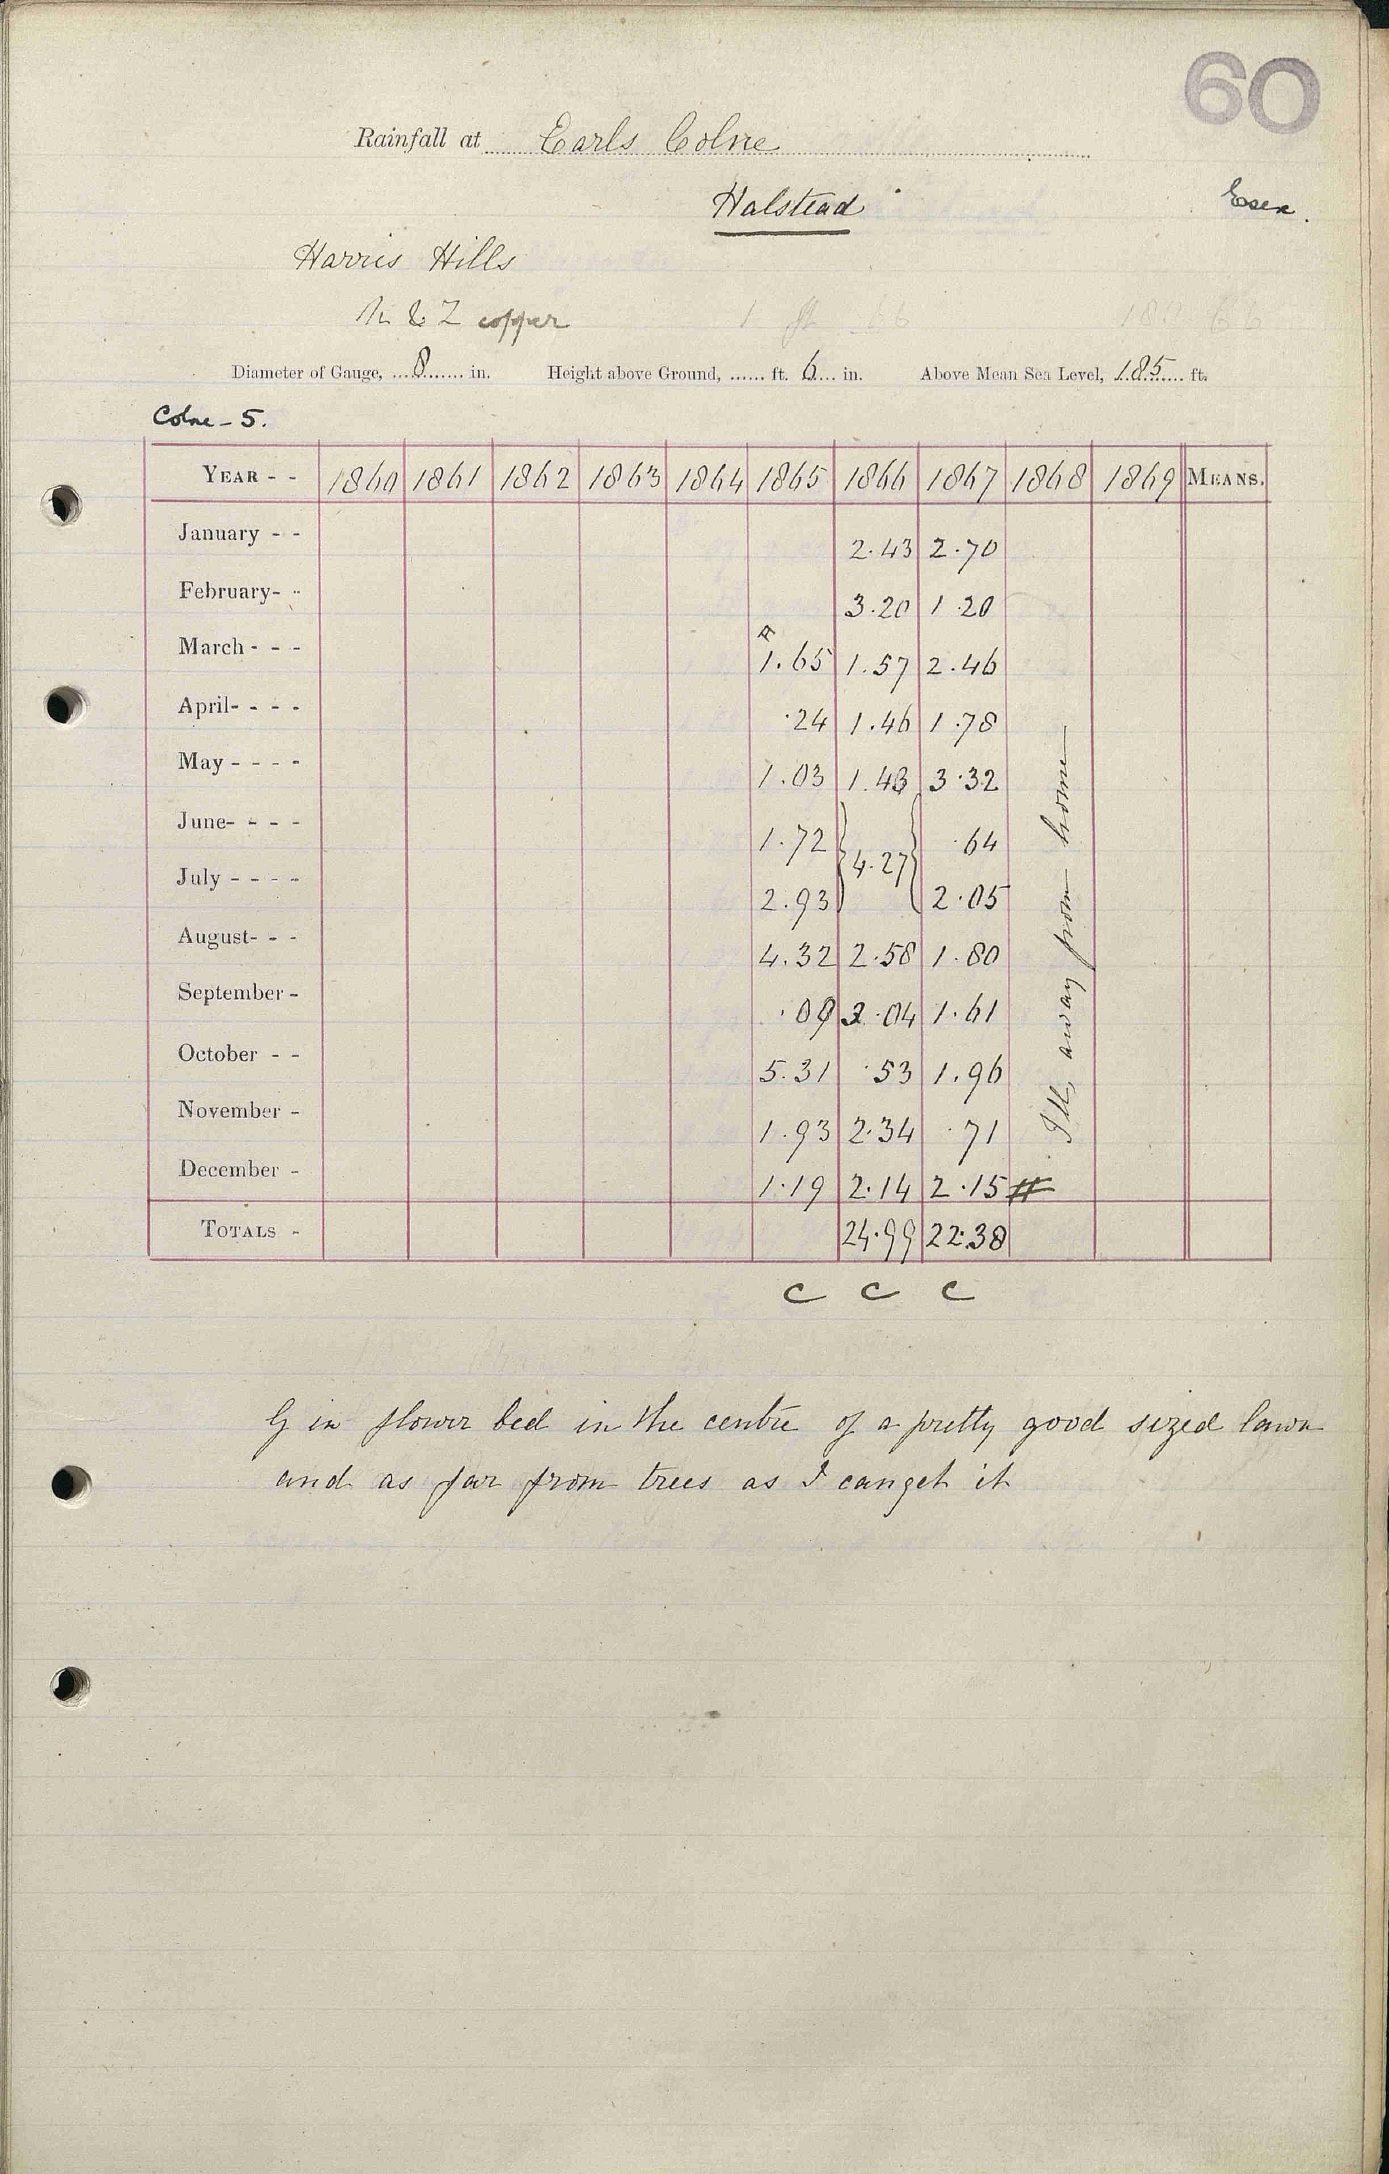 60
Rainfall at Earls Colne
Halstead Essex.
Harris Hills
N & Z copper
Diameter of Gauge, 8 in. Height above Ground, ...... ft. 6 in. Above Mean Sea Level, 185 ft.
Colne - 5.
YEAR - - 1860 1861 1862 1863 1864 1865 1866 1867 1868 1869 MEANS.
January - - 2.43 2.70
February- - 3.20 1.20
March - - - 1.65 1.57 2.46
April- - - - .24 1.46 1.78
May - - - - 1.03 1.43 3.32
June- - - - 1.72 .64
4.27
July - - - - 2.93 2.05
August- - - 4.32 2.58 1.80
September - .09 3.04 1.61
October - - 5.31 .53 1.96
November - 1.93 2.34 .71
December - 1.19 2.14 2.15 #
Ill, away from home
TOTALS - 24.99 22.38
C C C
G in flower bed in the centre of a pretty good sized lawn
and as far from trees as I can get it